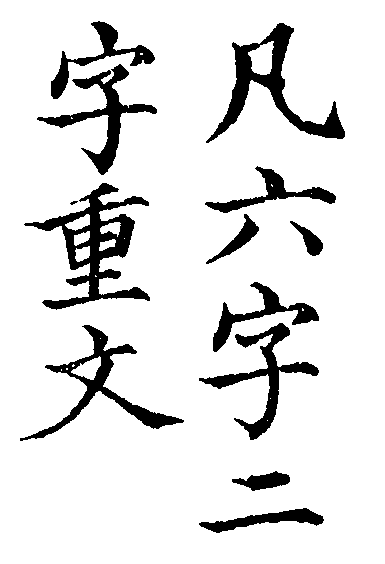 凡六字二
字重文